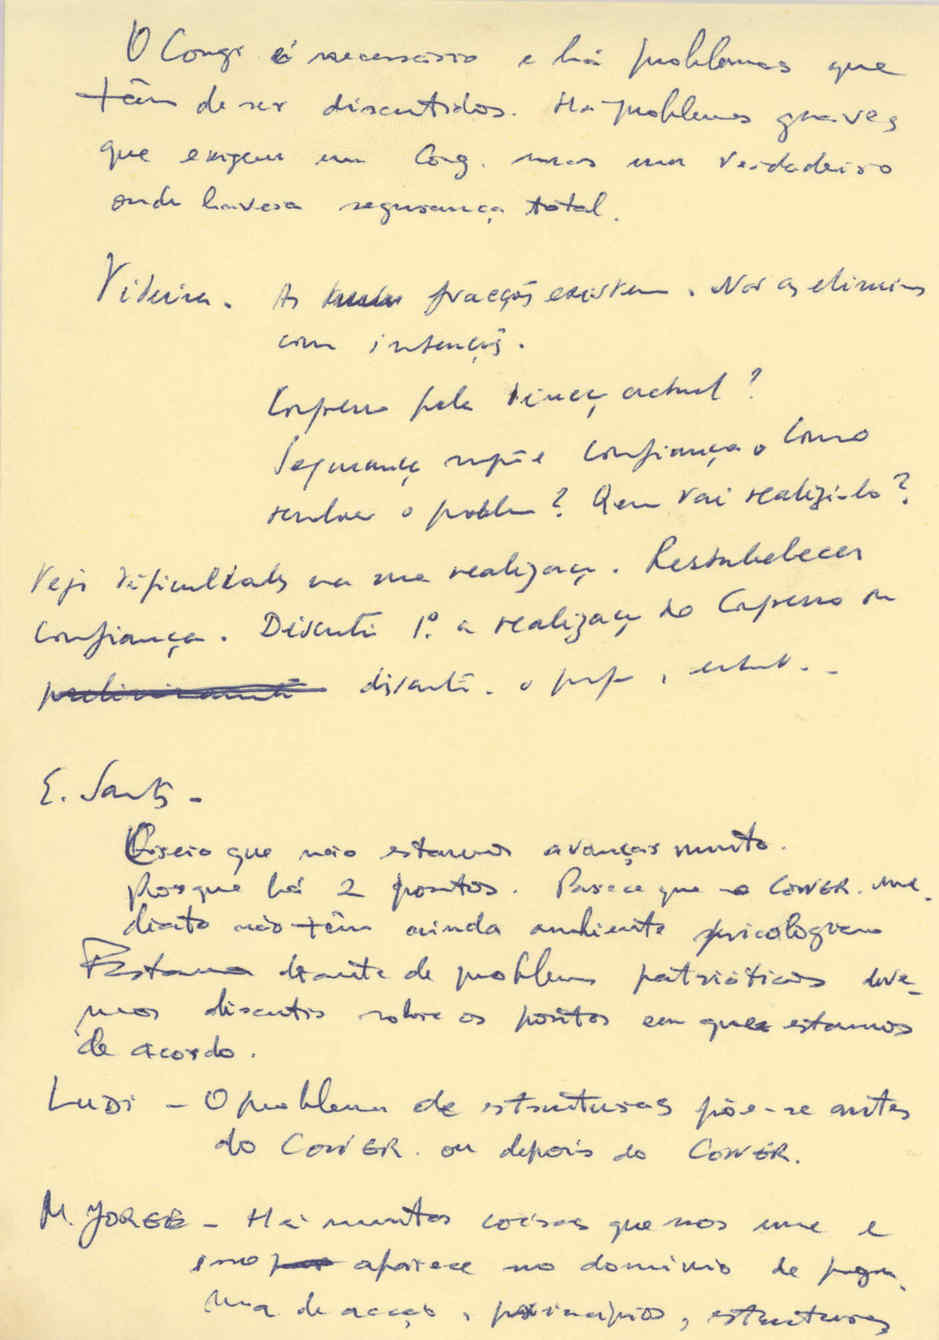 O Congr é necessário e há problemas que
têm de ser discutidos. Há problemas graves
que exigem um Cong. mas um verdadeiro
onde houvesse segurança total.
Videira. As fracções existem. Nós as
com
Congresso pela actual?
Segurança supõe confiança. Como
resolver o problema? Quem vai realizá-lo?
Vejo dificuldades na sua realização. Restabelecer
confiança. Discutir 1.º a realização do Congresso ou
discutir. o
E. Santos -
Creio que não estamos a avançar muito.
Porque há 2 pontos. Parece que o CONFER. ime-
diato não têm ainda ambiente psicológico
Estamos diante de problemas patrióticos deve-
mos discutir sobre os pontos em que estamos
de acordo.
LUDI - O problema de estruturas põe-se antes
do CONFER. ou depois do CONFER.
M. JORGE - Há muitas coisas que nos une e
isso aparece no domínio de progra-
ma de acção, princípios, estruturas